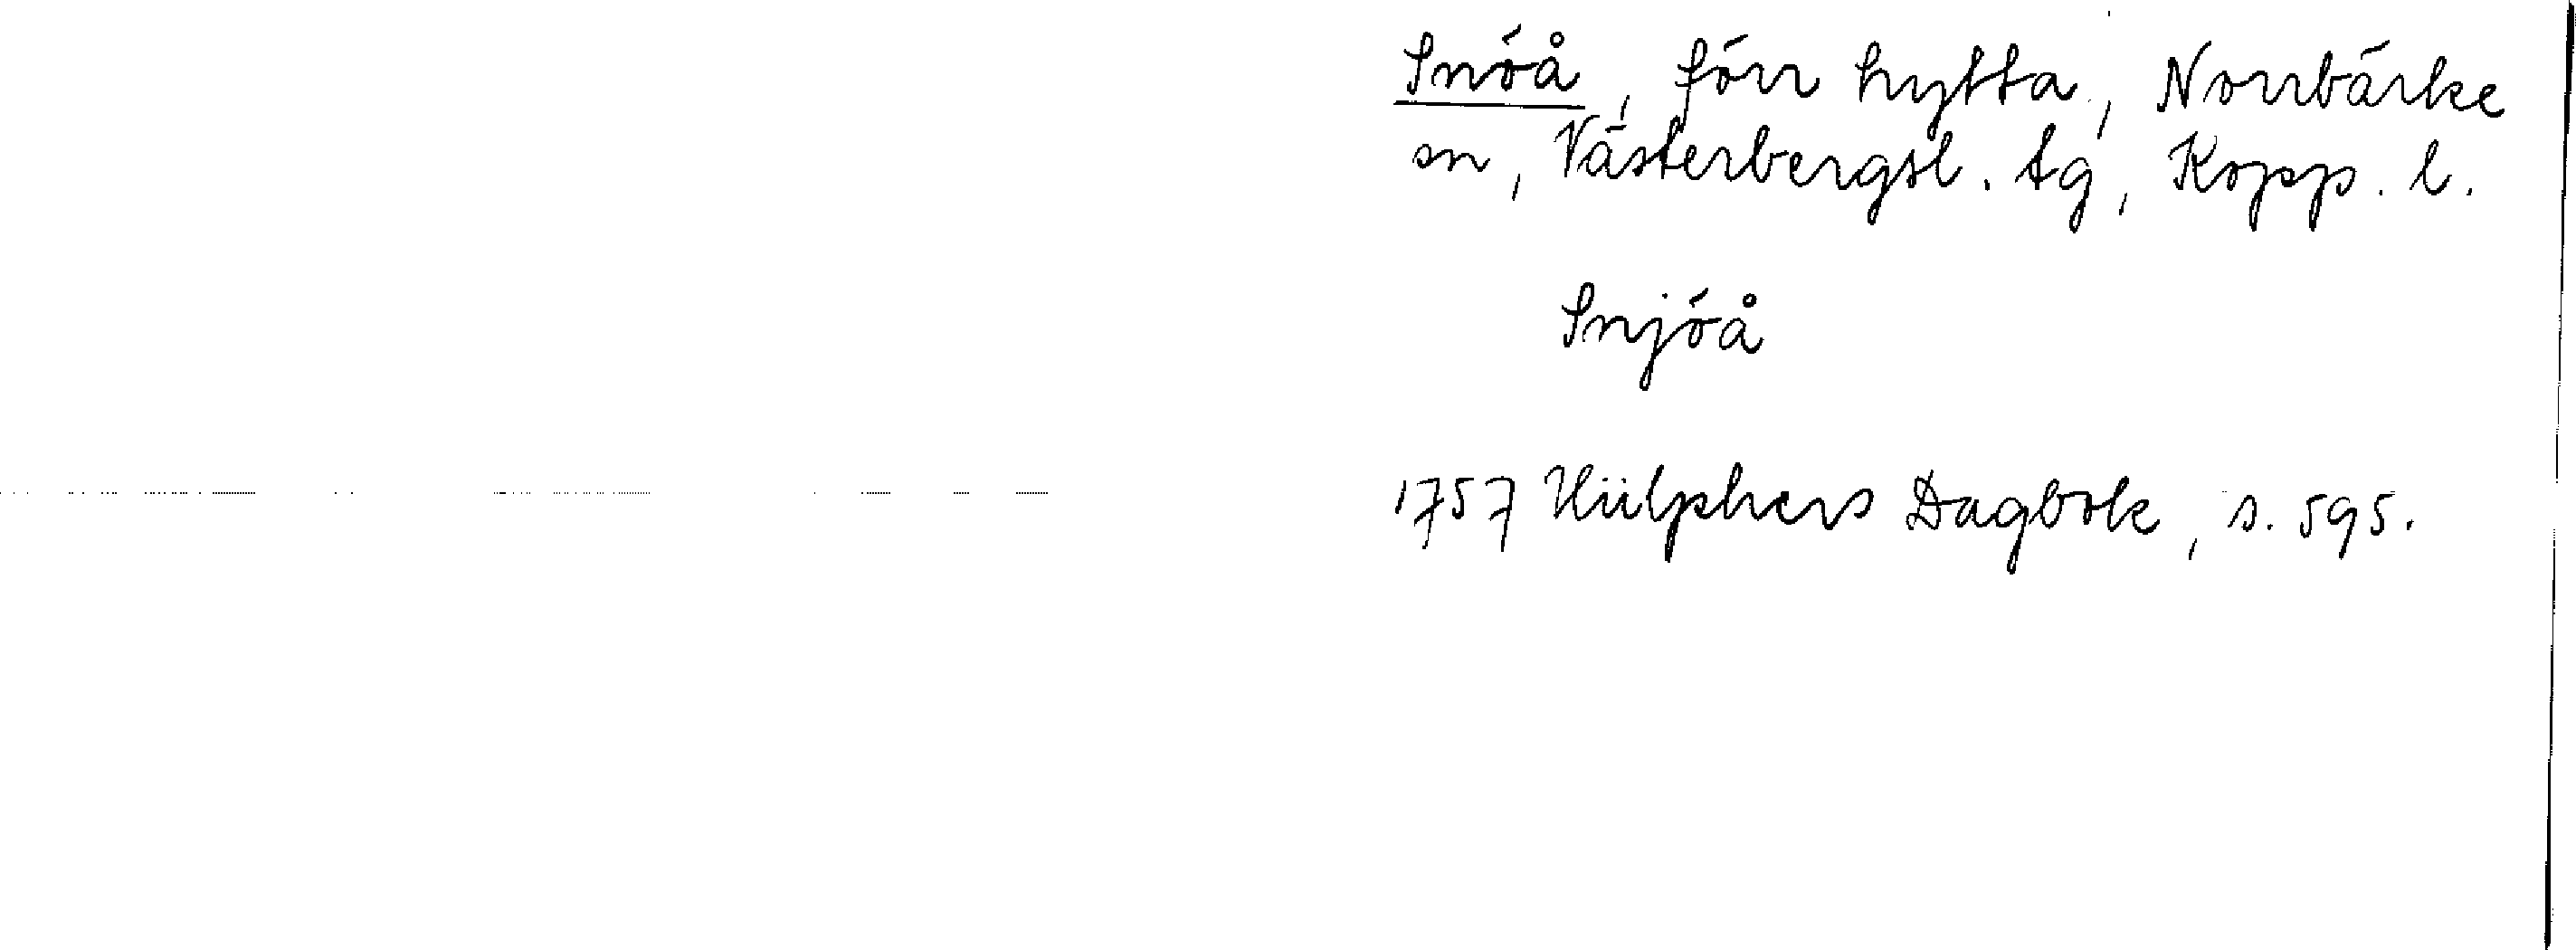 Snöå, förr hytta, Norrbärke
sn, Västerbergsl. tg, Kopp. l.
Snjöå
1757 Hülphers Dagbok, s. 595.